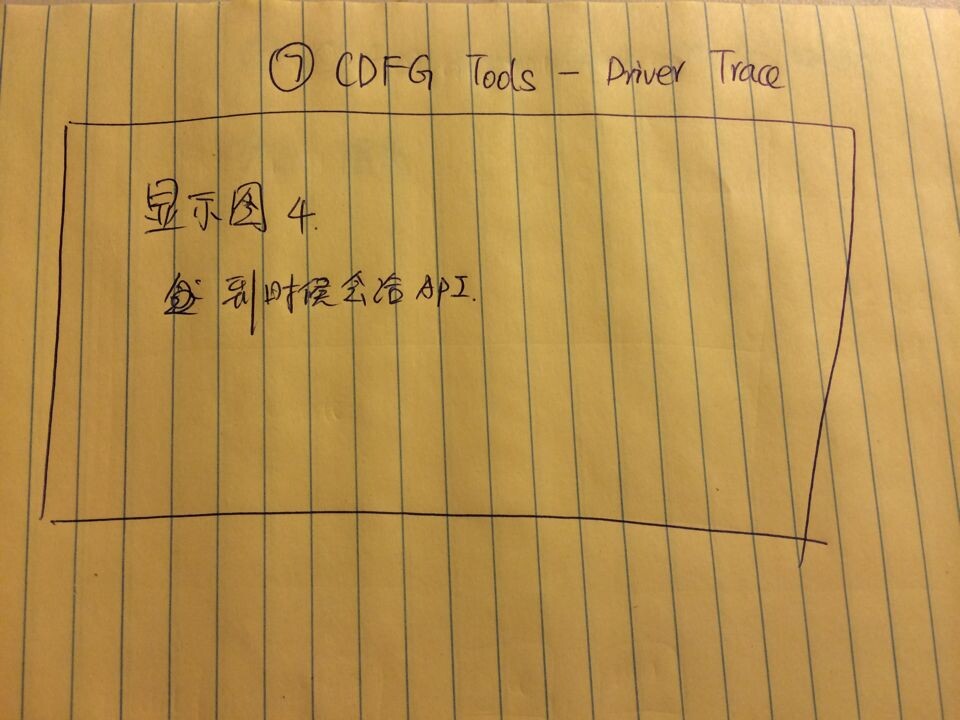 ⑦ CDFG Tools - Driver Trace
显示图 4.
到时候会给 API.